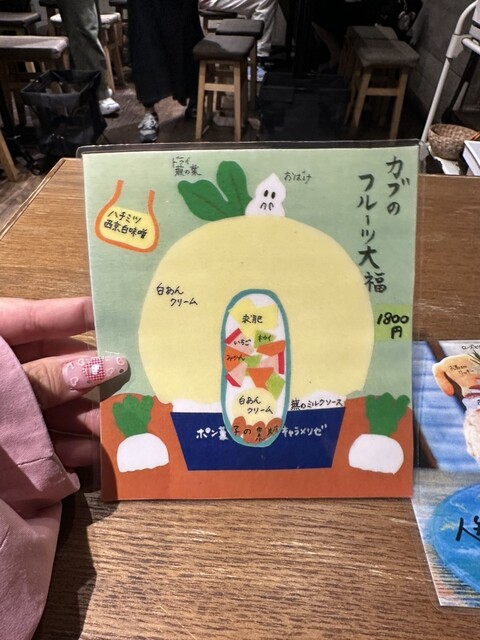 カブの
フルーツ大福
1800
円
ドライ
蕪の葉
おばけ
ハチミツ
西京白味噌
白あん
クリーム
求肥
いちご
キウイ
みかん
白あん
クリーム
蕪のミルクソース
ポン菓子の黒糖キャラメリゼ